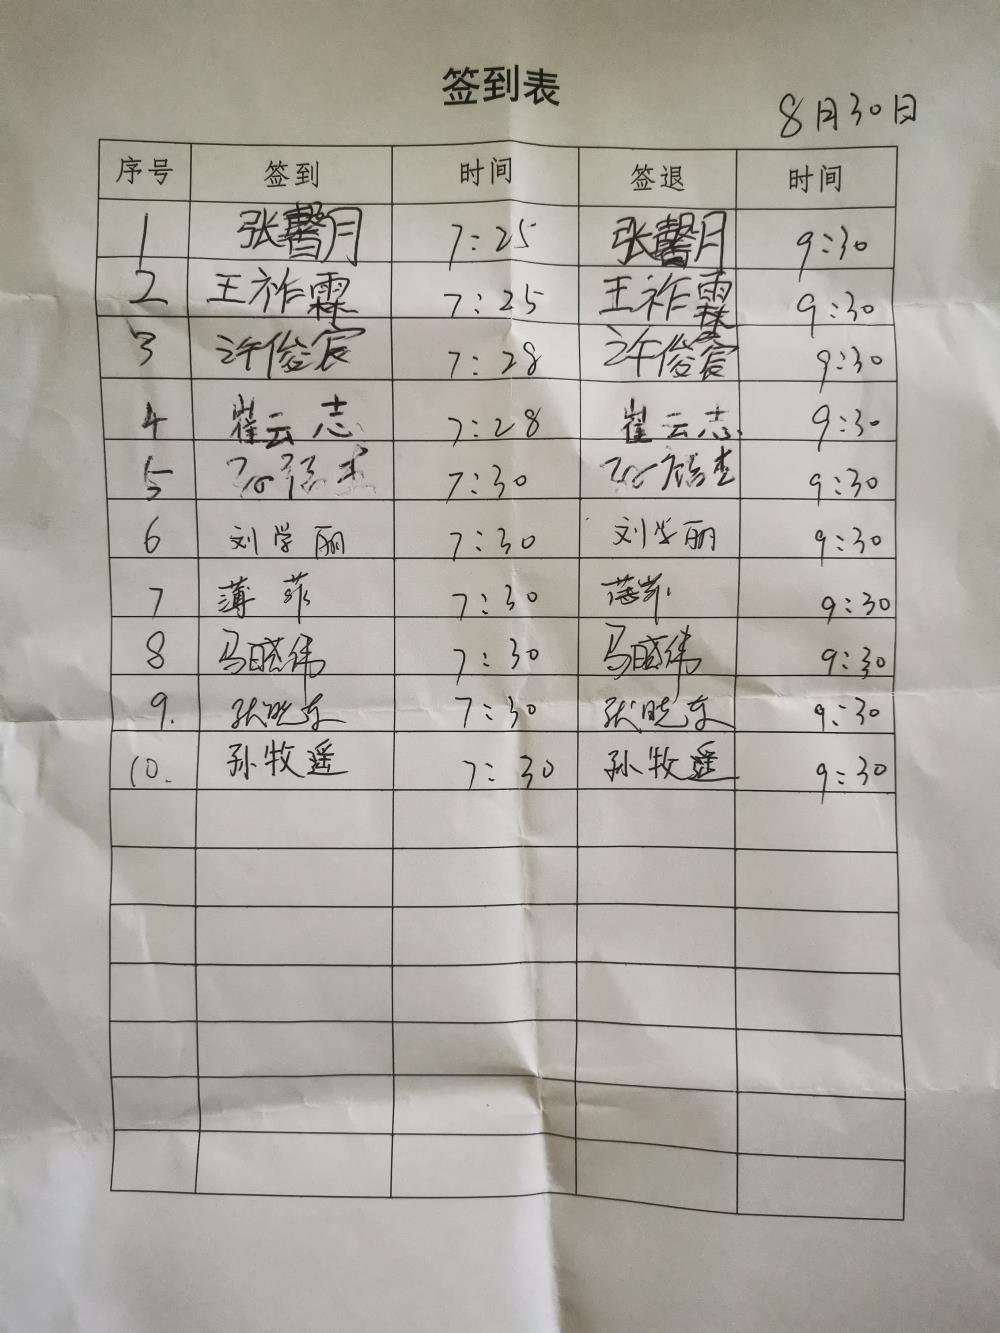 签到表
8月30日
序号 签到 时间 签退 时间
1 张馨月 7:25 张馨月 9:30
2 王祚霖 7:25 王祚霖 9:30
3 许俊宸 7:28 许俊宸 9:30
4 崔云志 7:28 崔云志 9:30
5 7:30 9:30
6 刘学丽 7:30 刘学丽 9:30
7 薄菲 7:30 9:30
8 马晓伟 7:30 马晓伟 9:30
9. 张晓东 7:30 张晓东 9:30
10. 孙牧遥 7:30 孙牧遥 9:30